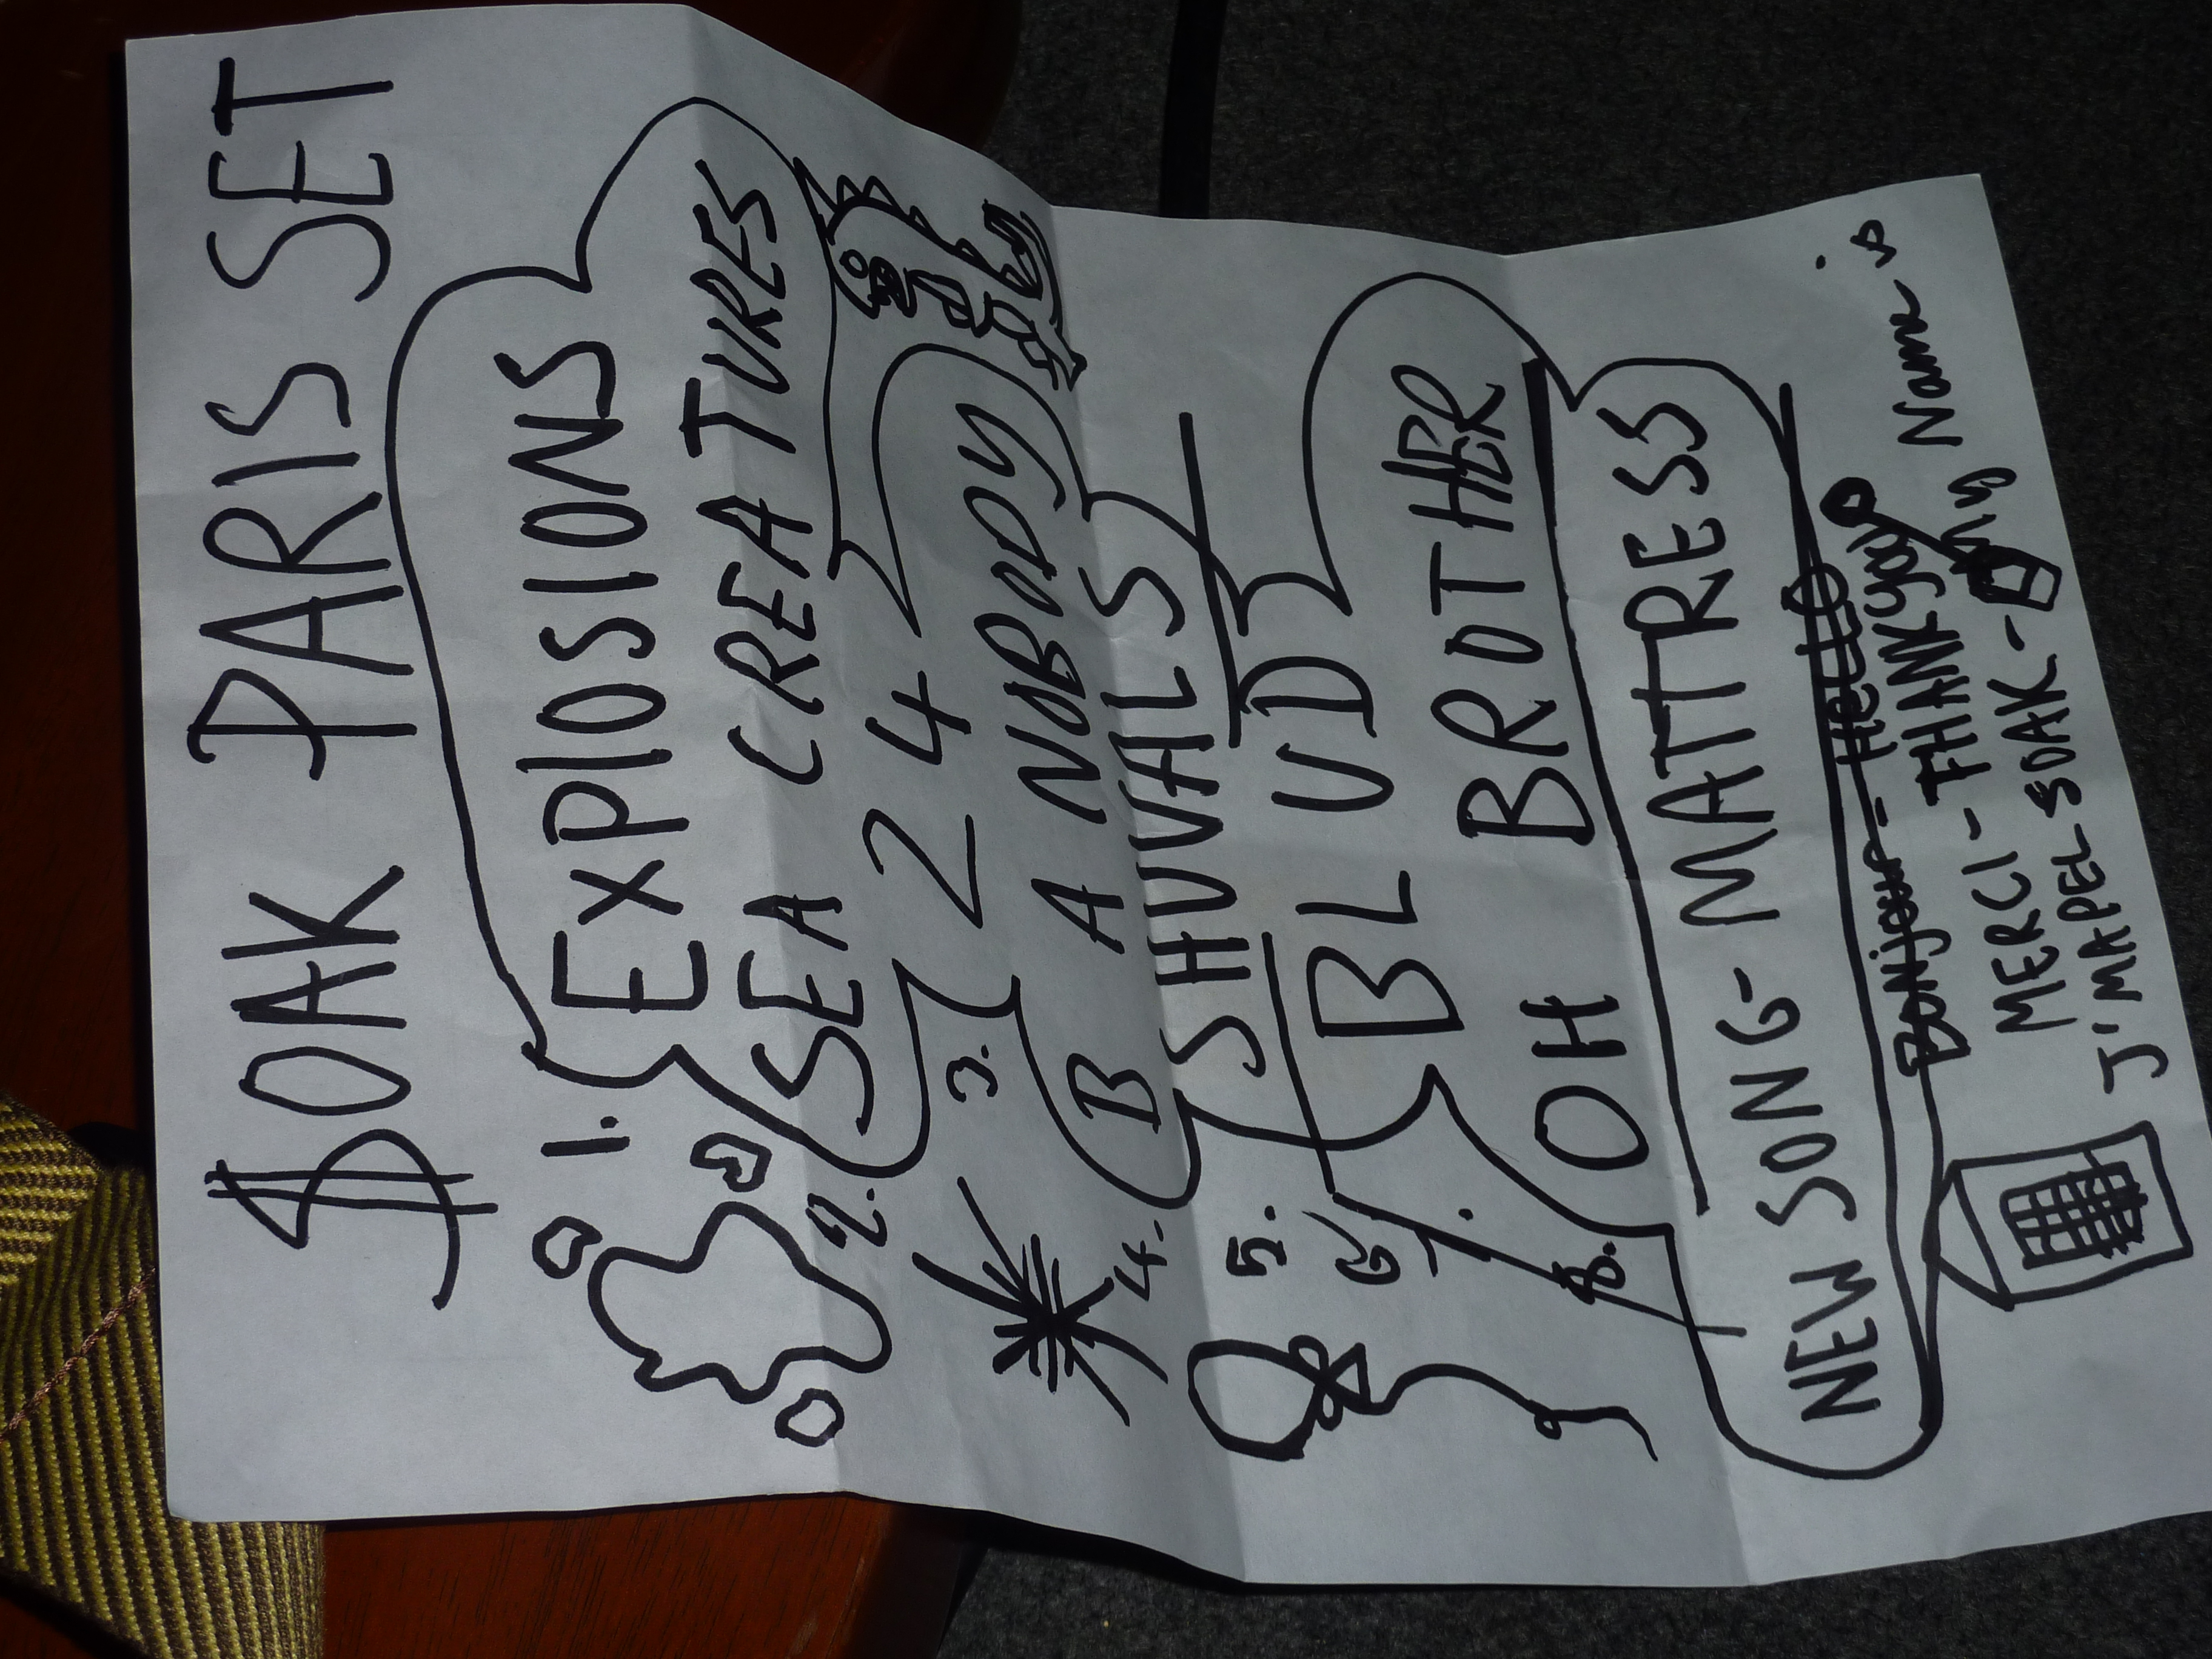 $OAK PARIS SET
1. EXPlOSIONS
2. SEA CREATURES
3. 24
4. B A NOBODY
5. SHUVALS
6. BL UD
7. OH BROTHER
8. NEW SONG - MATTRESS
BONjour - HELLO
MERCI - THANK you
J'MAPEL SOAK - My Name is